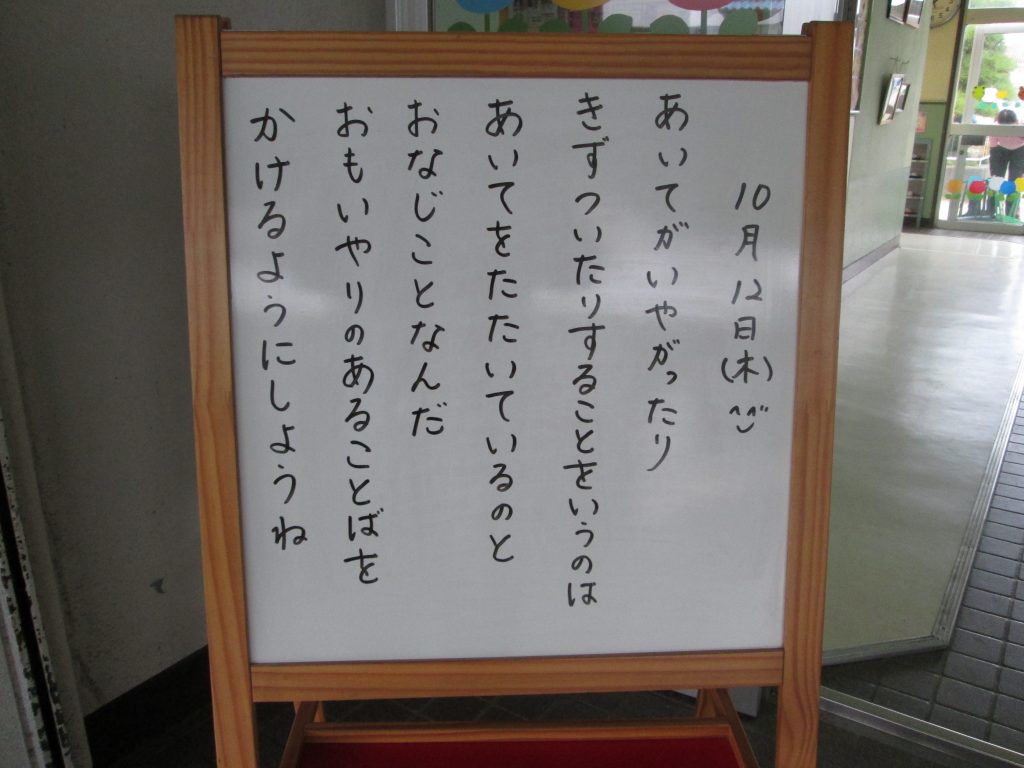 10月12日(木)
あいてがいやがったり
きずついたりすることをいうのは
あいてをたたいているのと
おなじことなんだ
おもいやりのあることばを
かけるようにしようね